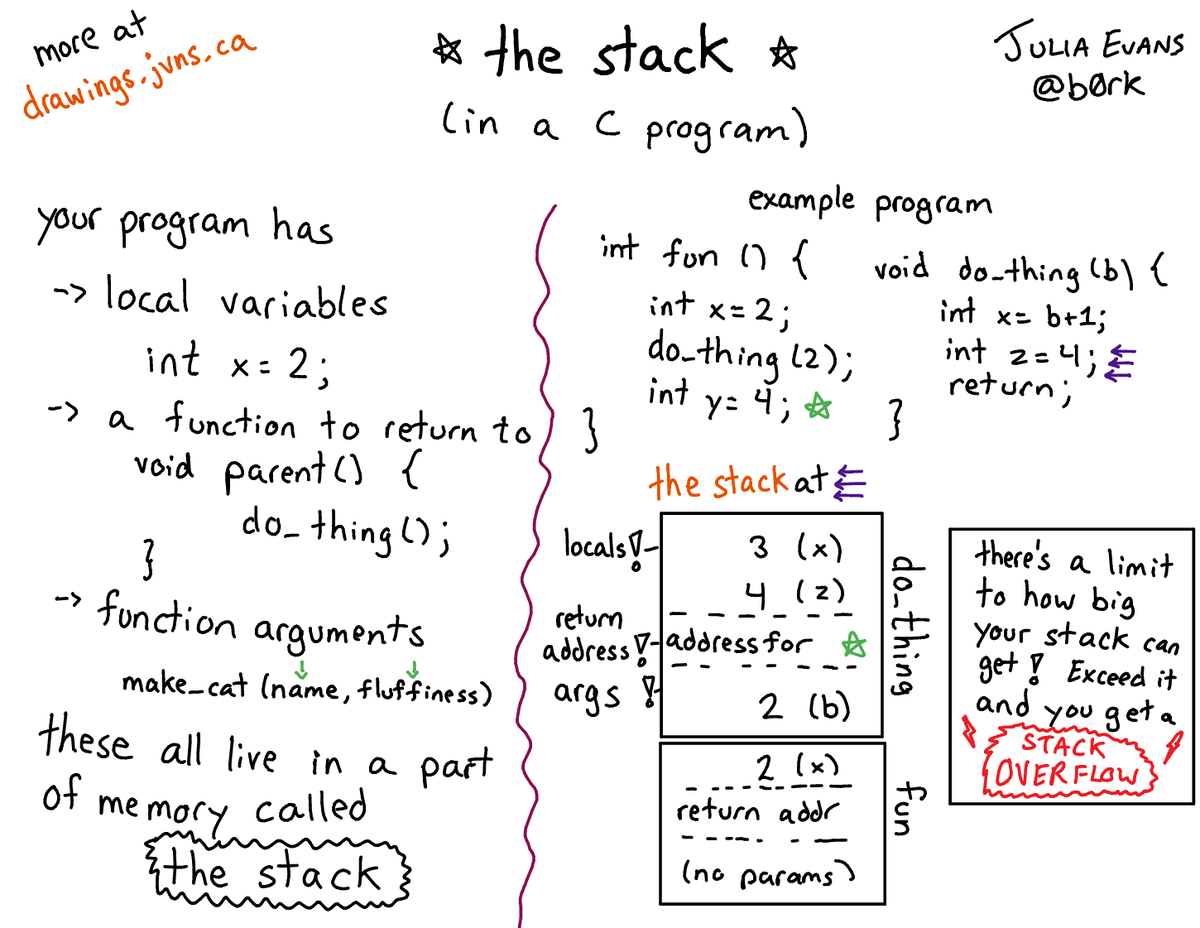 more at
drawings.jvns.ca
☆ the stack ☆
(in a C program)
JULIA EVANS
@b0rk
your program has
-> local variables
int x = 2;
-> a function to return to
void parent() {
do_thing();
}
-> function arguments
↓ ↓
make_cat (name, fluffiness)
these all live in a part
of memory called
the stack
example program
int fun () {
int x = 2;
do_thing (2);
int y = 4; ☆
}
void do_thing (b) {
int x = b+1;
int z = 4; ⇚
return;
}
the stack at ⇚
locals!
3 (x)
4 (z)
return
address!
address for ☆
args !
2 (b)
do_thing
2 (x)
return addr
(no params)
fun
there's a limit
to how big
your stack can
get! Exceed it
and you get a
STACK
OVERFLOW